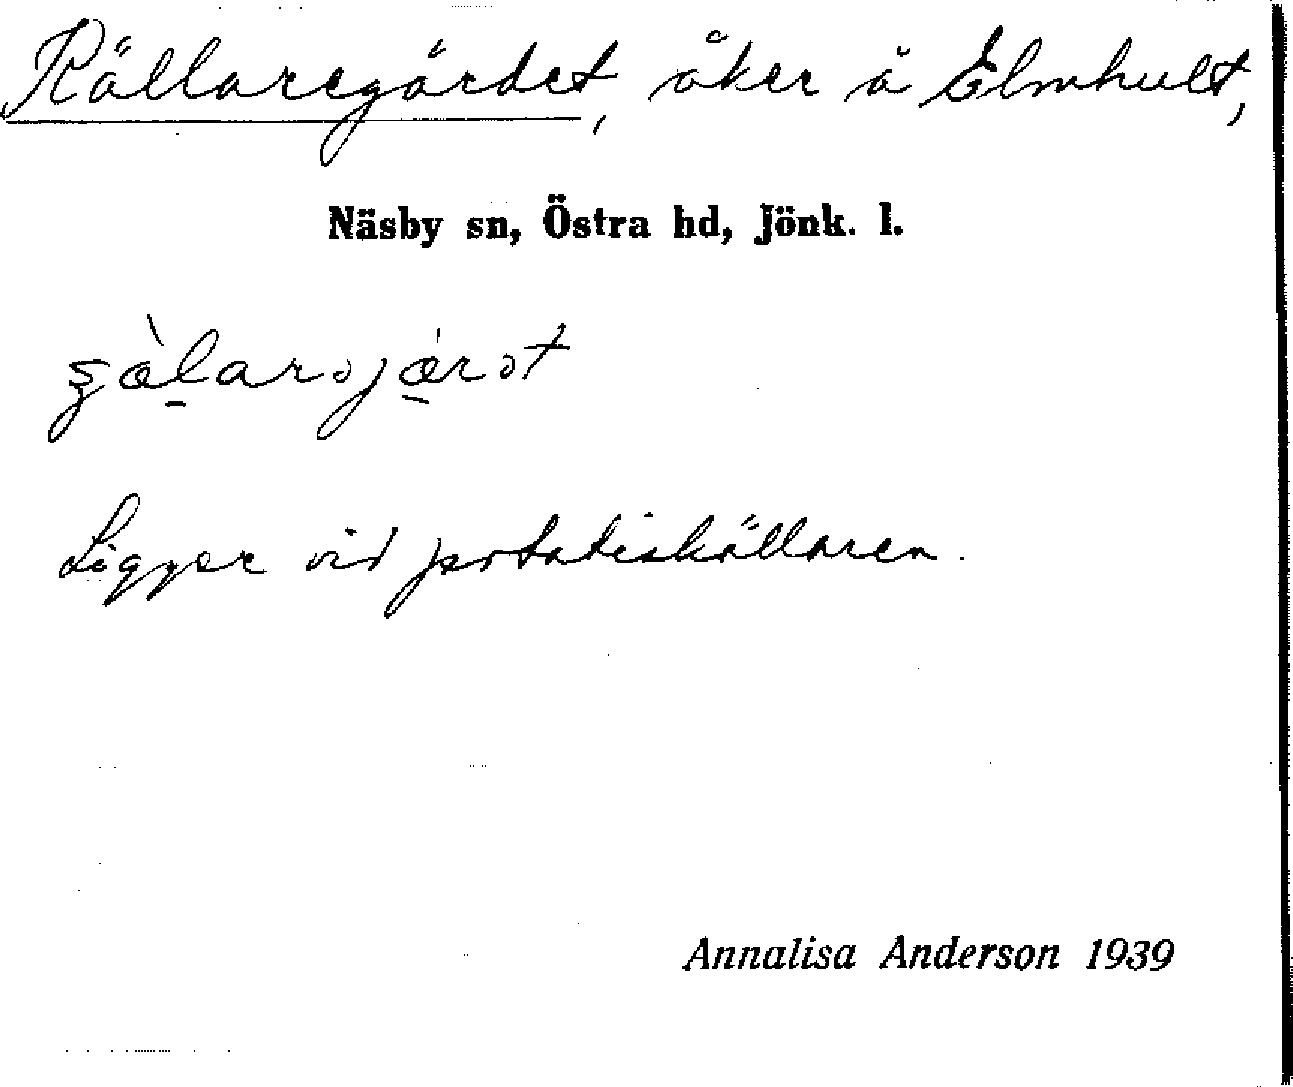 Källaregärdet, åker å Elmhult,
Näsby sn, Östra hd, Jönk. l.
Ligger vid potatiskällaren.
Annalisa Anderson 1939